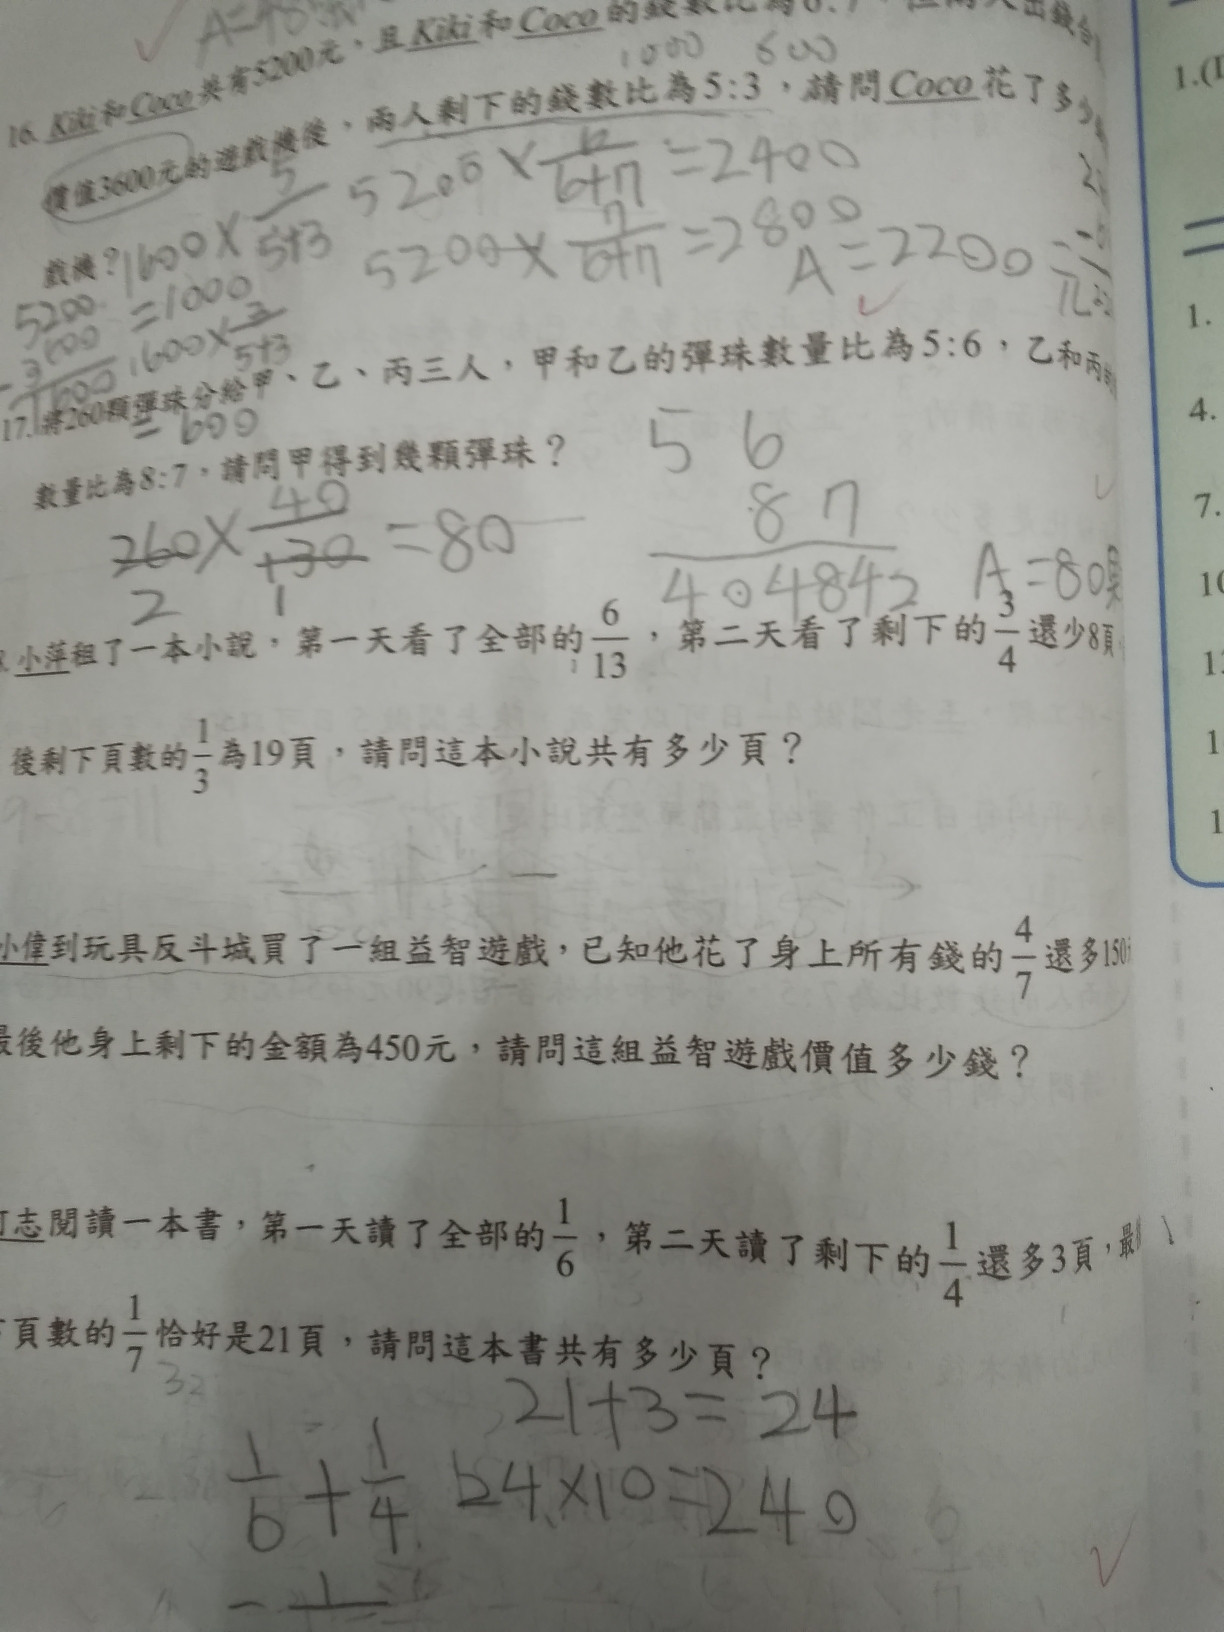 A=48
16. Kiki和Coco共有5200元,且Kiki和Coco的錢數比為6:7,但兩人出錢合
1000 600
價值3600元的遊戲機後,兩人剩下的錢數比為5:3,請問Coco花了多少
戲機?
1600×5/5+3 5200×6/6+7=2400
=1000 5200×7/6+7=2800
5200 A=2200元
-3600 1600×3/5+3
1600
17. 將260顆彈珠分給甲、乙、丙三人,甲和乙的彈珠數量比為5:6,乙和丙的
=600
數量比為8:7,請問甲得到幾顆彈珠?
5 6
8 7
260×40/130=80
2 1
40 48 42 A=80顆
小萍租了一本小說,第一天看了全部的6/13,第二天看了剩下的3/4還少8頁
後剩下頁數的1/3為19頁,請問這本小說共有多少頁?
小偉到玩具反斗城買了一組益智遊戲,已知他花了身上所有錢的4/7還多150
最後他身上剩下的金額為450元,請問這組益智遊戲價值多少錢?
志閱讀一本書,第一天讀了全部的1/6,第二天讀了剩下的1/4還多3頁,最
頁數的1/7恰好是21頁,請問這本書共有多少頁?
32
21+3=24
1/6+1/4 24×10=240
1.
1.
4.
7.